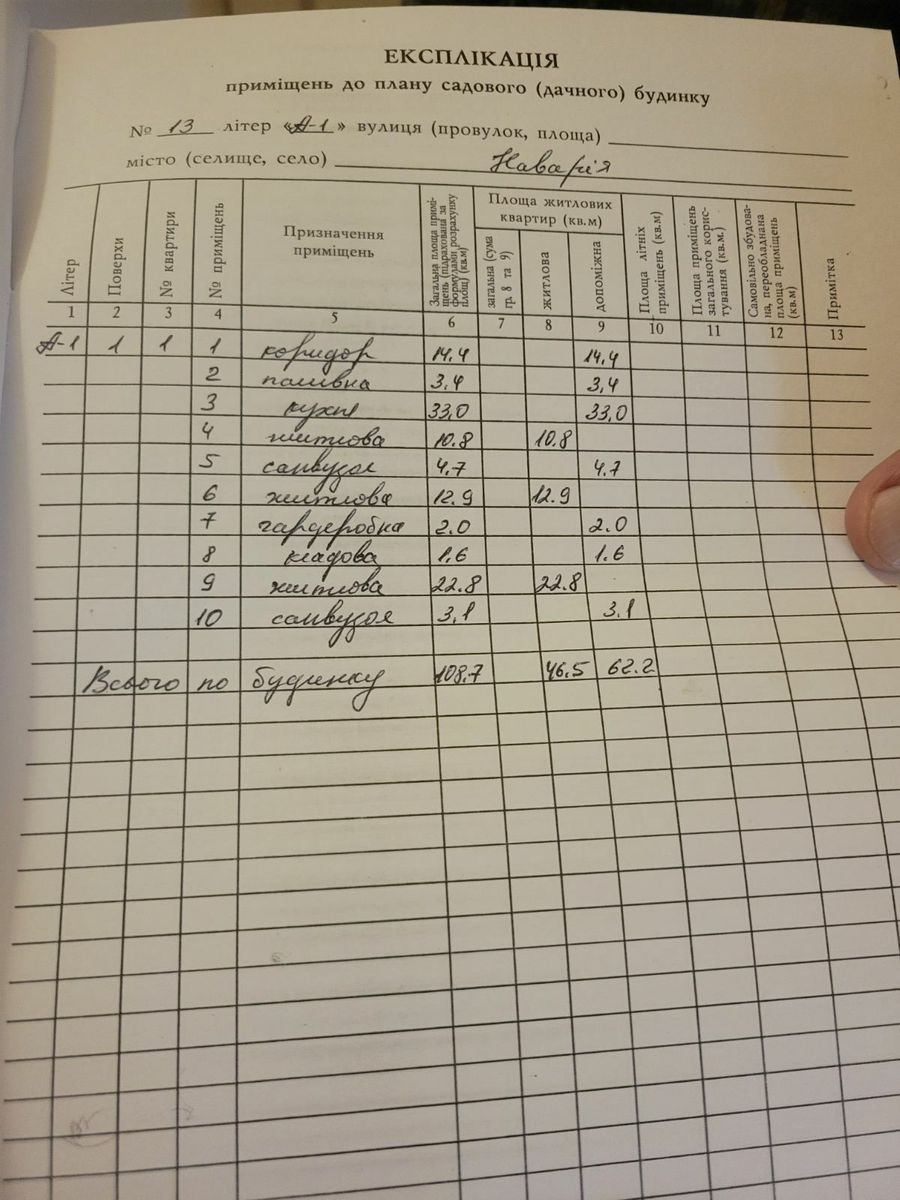 ЕКСПЛІКАЦІЯ
приміщень до плану садового (дачного) будинку
№ 13 літер «А-1» вулиця (провулок, площа)
місто (селище, село) Наварія
Літер Поверхи № квартири № приміщень Призначення приміщень Загальна площа приміщень (підрахована за формулами розрахунку площ) (кв.м) Площа житлових квартир (кв.м) загальна (сума гр. 8 та 9) житлова допоміжна Площа літніх приміщень (кв.м) Площа приміщень загального користування (кв.м.) Самовільно збудована, переобладнана площа приміщень (кв.м) Примітка
1 2 3 4 5 6 7 8 9 10 11 12 13
А-1 1 1 1 коридор 14,4 14,4
2 паливна 3,4 3,4
3 кухня 33,0 33,0
4 житлова 10.8 10.8
5 санвузол 4.7 4.7
6 житлова 12.9 12.9
7 гардеробна 2.0 2.0
8 кладова 1.6 1.6
9 житлова 22.8 22.8
10 санвузол 3,1 3,1
Всього по будинку 108.7 46.5 62.2